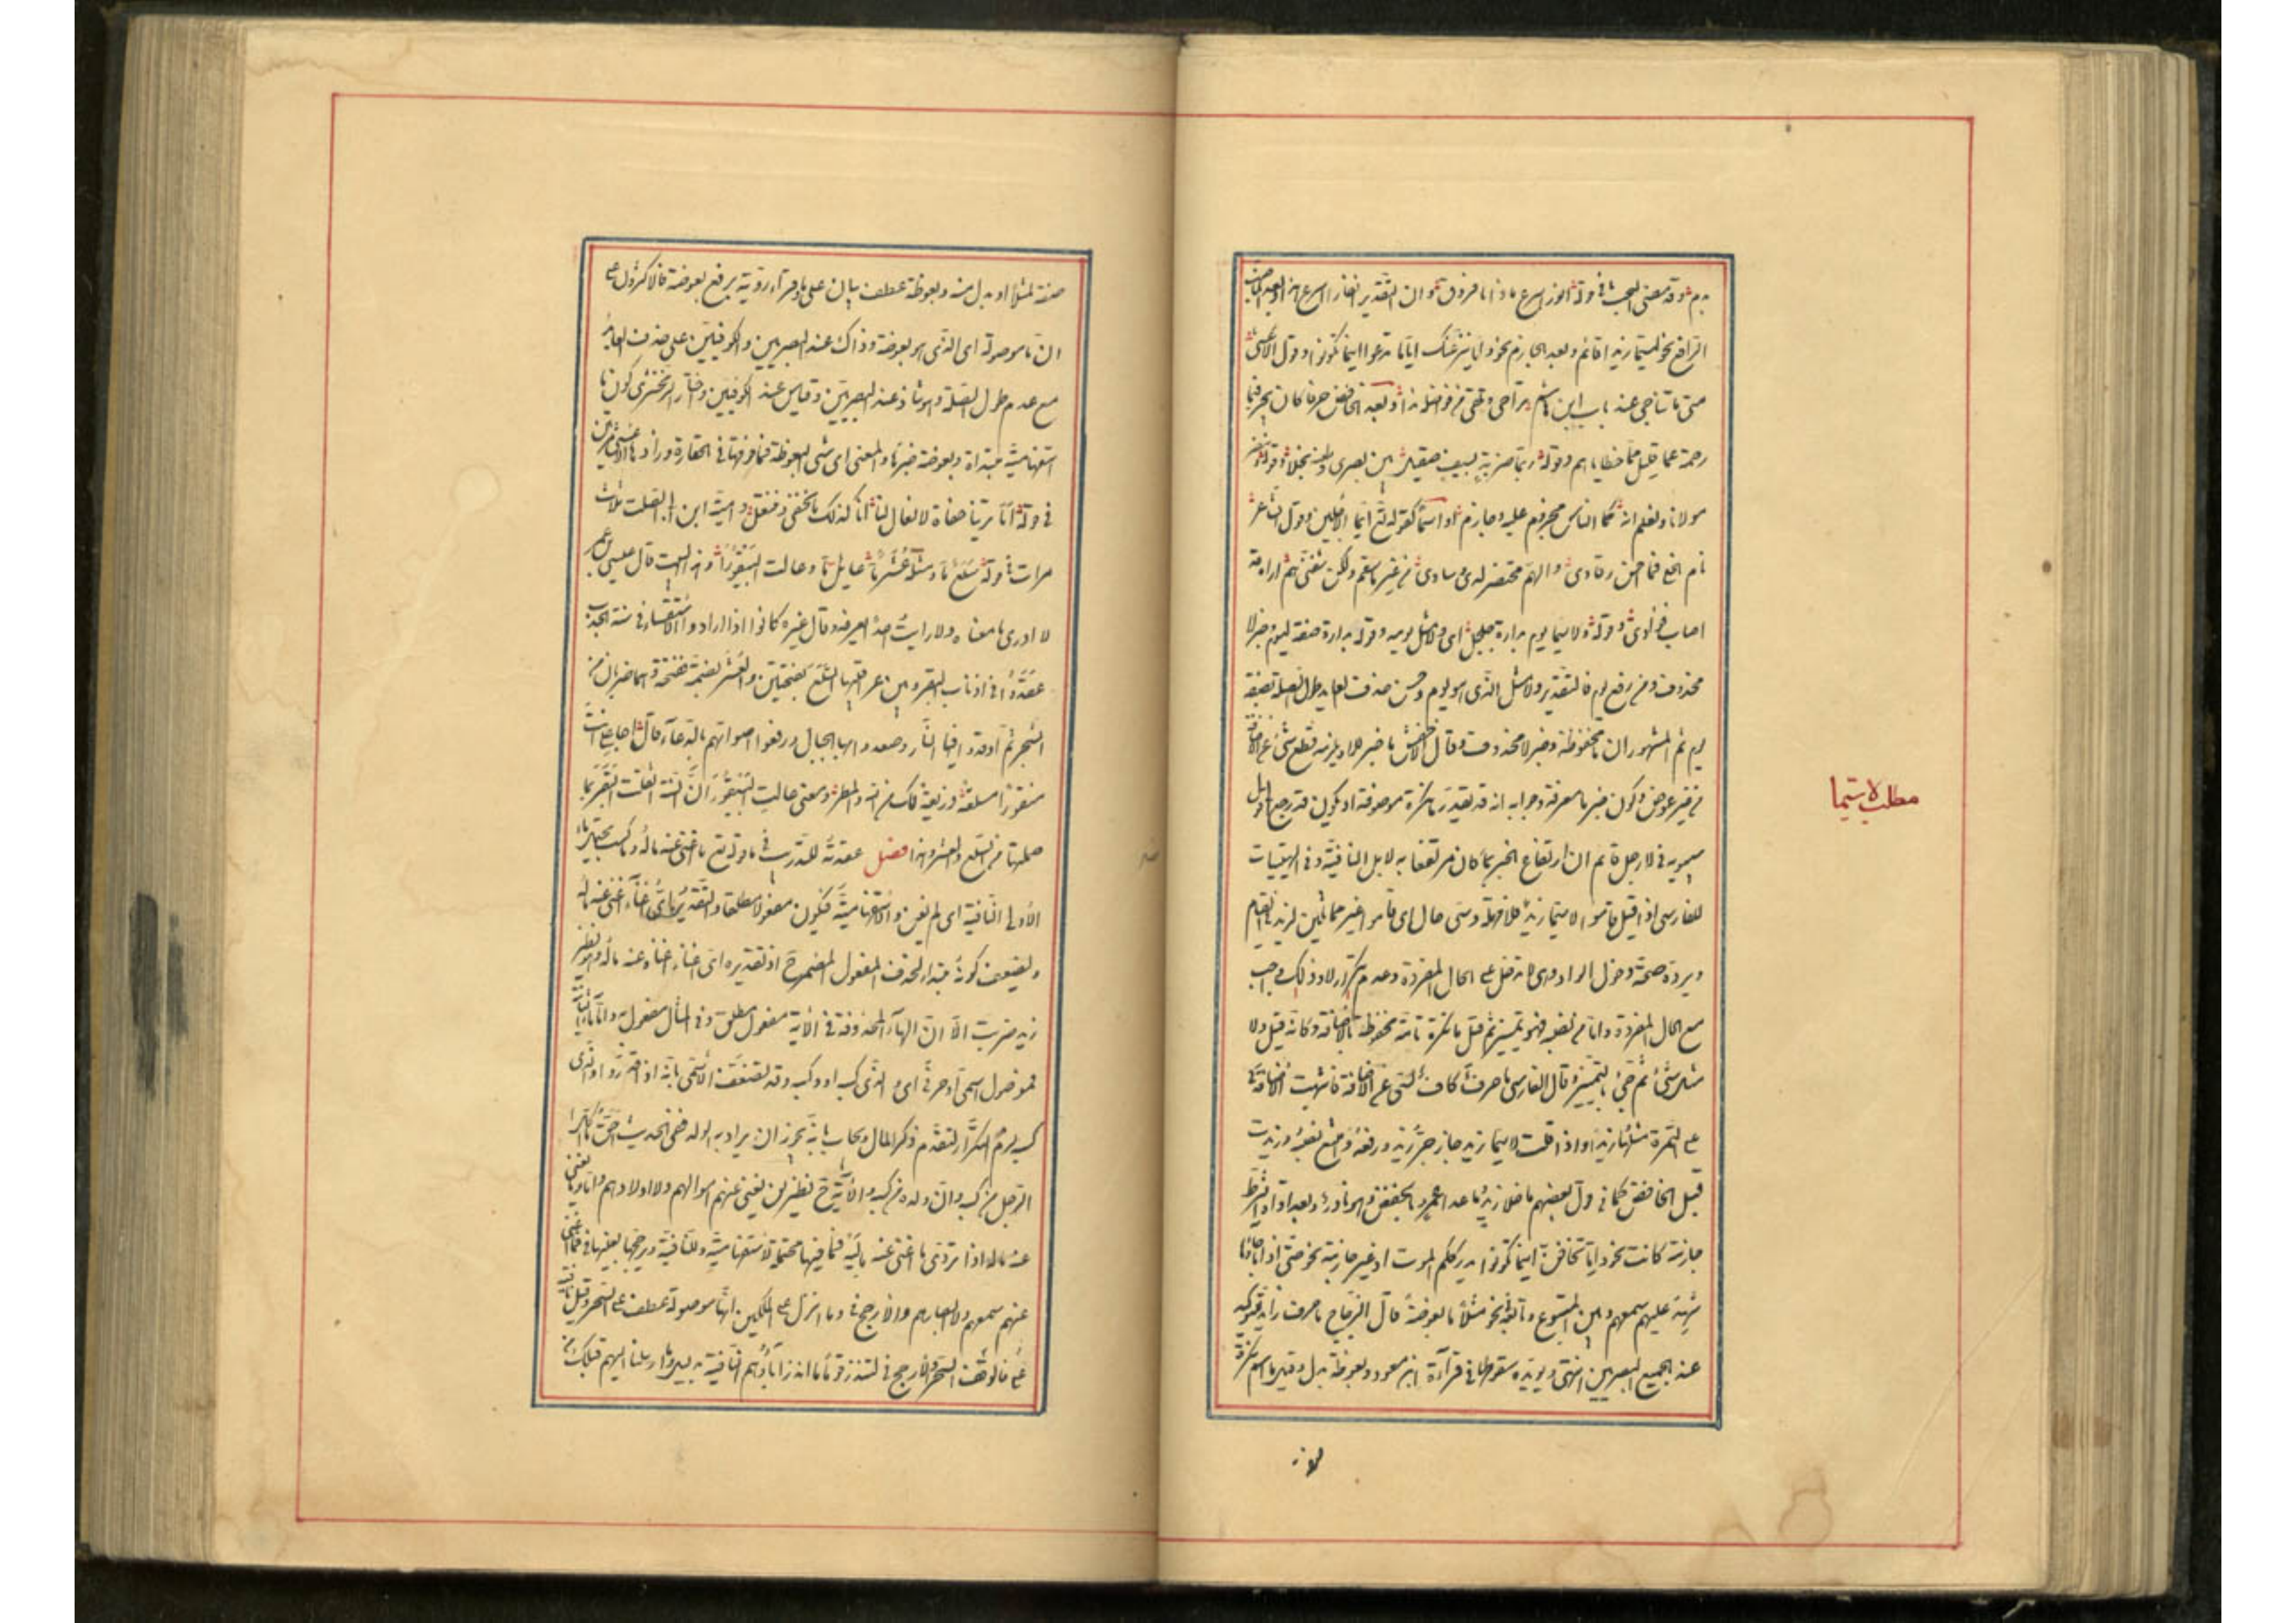 الرافع نحو ليتما زيدا قائم وبعد الجازم نحو واما ينزغنك اياما تدعوا اينما تكونوا وقول الاعشى
متى ما تناخى عند باب ابن هاشم تراحى وتلقى من فواضله ندا وبعد الخافض حرفا كان نحو فبما
رحمة عما قليل مما خطاياهم وقوله ربما ضربة بسيف صقيل بين بصرى وطعنة نجلاء وقوله وننصر
مولانا ونعلم انه كما الناس مجروم عليه وجارم او اسما كقوله تع ايما الاجلين وقول الشاعر
نام الخلى فما احس رقادى والهم محتضر لدى وسادى من غير ما سقم ولكن شفنى هم اراه قد
اصاب فؤادى وقوله ولا سيما يوم بدارة جلجل اى ولا مثل يوم وقوله بدارة صفة ليوم وخبر لا
محذوف ومن رفع يوم فالتقدير ولا مثل الذى هو يوم وحسن حذف العايد طول الصلة بصفة
يوم ثم المشهور ان ما مخفوظة وخبر لا محذوف وقال الاخفش ما خبر للا ويلزمه قطع سى عن الاضافة
من غير عوض وكون خبر لا معرفة وجوابه انه قد يقدر ما نكرة موصوفة او يكون قد رجع الى قول
سيبويه فى لا رجل قائم ان ارتفاع الخبر بما كان مرتفعا به لا بلا النافية وفى الهيتيات
للفارسى اذا قيل قاموا لا سيما زيد فلا مهملة وسى حال اى قاموا غير مماثلين لزيد فى القيام
ويرده صحة دخول الواو وهى لا تدخل على الحال المفردة وعدم تكرار لا وذلك واجب
مع الحال المفردة واما من نصبه فهو تمييز ثم قيل ما نكرة تامة مخفوظة بالاضافة وكانه قيل ولا
مثل شىء ثم جىء بالتمييز وقال الفارسى ما حرف كاف لسى عن الاضافة فاشبهت الاضافة فى
على التمرة مثلها زبدا واذا قلت لا سيما زيد جاز جر زيد ورفعه وامتنع نصبه وزيدت
قبل الخافض كما فى قول بعضهم ما خلا زيد وما عدا عمرو بالخفض وهو نادر وبعد اداة الشرط
جازمة كانت نحو واما تخافن اينما تكونوا يدرككم الموت او غير جازمة نحو حتى اذا ما جاؤها
شهد عليهم سمعهم وبين المتبوع وتابعه نحو مثلا ما بعوضة قال الزجاج ما حرف زايد للتوكيد
عند جميع البصريين انتهى ويؤيده سقوطها فى قراءة ابن مسعود وبعوضة بدل وقيل ما اسم نكرة
مطلب لا سيما
صفة لمثلا او بدل منه وبعوظة عطف بيان على ما وقراءة رؤبة برفع بعوضة فالاكثرون على
ان ما موصولة اى الذى هو بعوضة وذاك عند البصريين والكوفيين على حذف العايد
مع عدم طول الصلة وهو شاذ عند البصريين وقياس عند الكوفيين واختار الزمخشرى كون ما
استفهامية مبتداة وبعوضة خبرها والمعنى اى شىء البعوظة فما فوقها فى الحقارة وزاد ها الاعشى مرتين
فى قوله اما ترينا حفاة لا نعال لنا انا كذلك ما نحفى وننتعل وامية ابن ابى الصلت ثلاث
مرات فى قوله سلع ما ومثله عشر ما عايل ما وعالت البيقورا وهذا البيت قال عيسى بن عمر
لا ادرى ما معناه ولا رايت احدا يعرفه وقال غيره كانوا اذا ارادوا الاستسقاء فى سنة الجدب
عقدوا فى اذناب البقر وبين عراقيبها السلع بفتحتين والعشر بضمة ففتحة وهما ضربان من
الشجر ثم اوقدوا فيها النار وصعدوا بها الجبال ورفعوا اصواتهم بالدعاء قال اجاعل انت
بيقورا مسلعة ذريعة لك بين الله والمطر ومعنى عالت البيقور ان السنة اثقلت البقر بما
حملتها من السلع والعشر وهذا فصل عقدته للتدرب فى ما قوله تع ما اغنى عنه ماله وما كسب يحتمل ما
الاولى النافية اى لم يغن والاستفهامية فيكون مفعولا مطلقا والتقدير اى اغناء اغنى عنه ماله
ويضعف كونه مبتدا لحذف المفعول المضمر ح اذ تقديره اى اغناء اغناه عنه ماله وهو نظير
زيد ضربت الا ان الهاء المحذوفة فى الاية مفعول مطلق وفى المثال مفعول به واما ما الثانية
فموصول اسمى او حرفى اى والذى كسبه او وكسبه وقد يضعف الاسمى بانه اذا قدر والذى
كسبه لزم التكرار لتقدم ذكر المال ويجاب بانه يجوز ان يراد به الولد ففى الحديث احق ما اكل
الرجل من كسبه وان ولده من كسبه والاية ح نظير لن يغنى عنهم اموالهم ولا اولادهم واما وما يغنى
عنه ماله اذا تردى ما اغنى عنى ماليه فما فيها محتملة لاستفهامية وللنافية ويرجحها تعينها فى فما اغنى
عنهم سمعهم ولا ابصارهم والارجح فى وما انزل على الملكين انها موصولة عطف على السحر وقيل نافية
فالوقف على السحر والارجح فى لتنذر قوما ما انذر آباؤهم النافية بدليل وما ارسلنا اليهم قبلك من